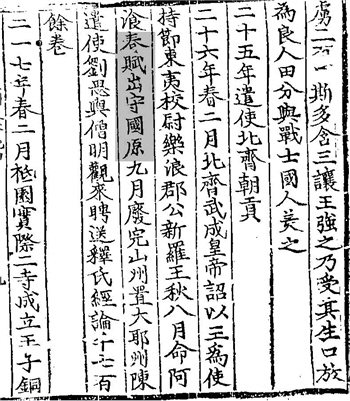 虜二斯多含三讓王強之乃受其生口放
為良人田分與戰士國人美之
二十五年遣使北齊朝貢
二十六年春二月北齊武成皇帝詔以王爲使
持節東夷校尉樂浪郡公新羅王秋八月命阿
湌春賦出守國原九月廢完山州置大耶州陳
遣使劉思與僧明觀來聘送釋氏經論千七百
餘卷
二十七年春二月祗園實際二寺成立王子銅